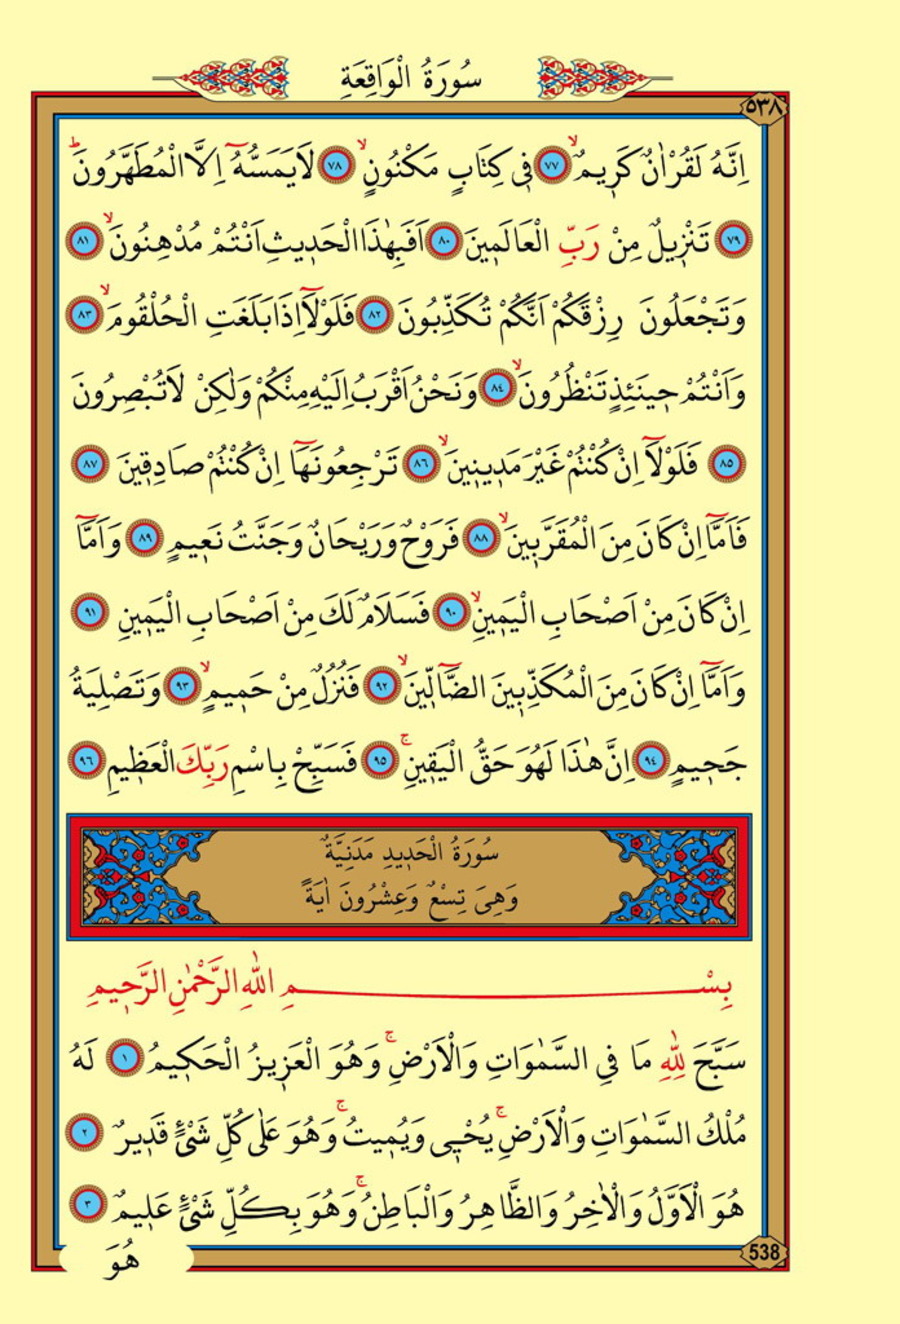 سُورَةُ الْوَاقِعَةِ
٥٣٨
اِنَّهُ لَقُرْاٰنٌ كَرٖيمٌۙ ﴿٧٧﴾ فٖى كِتَابٍ مَكْنُونٍۙ ﴿٧٨﴾ لَا يَمَسُّهُٓ اِلَّا الْمُطَهَّرُونَۜ
﴿٧٩﴾ تَنْزٖيلٌ مِنْ رَبِّ الْعَالَمٖينَ ﴿٨٠﴾ اَفَبِهٰذَا الْحَدٖيثِ اَنْتُمْ مُدْهِنُونَۙ ﴿٨١﴾
وَتَجْعَلُونَ رِزْقَكُمْ اَنَّكُمْ تُكَذِّبُونَ ﴿٨٢﴾ فَلَوْلَٓا اِذَا بَلَغَتِ الْحُلْقُومَۙ ﴿٨٣﴾
وَاَنْتُمْ حٖينَئِذٍ تَنْظُرُونَۙ ﴿٨٤﴾ وَنَحْنُ اَقْرَبُ اِلَيْهِ مِنْكُمْ وَلٰكِنْ لَا تُبْصِرُونَ
﴿٨٥﴾ فَلَوْلَٓا اِنْ كُنْتُمْ غَيْرَ مَدٖينٖينَۙ ﴿٨٦﴾ تَرْجِعُونَهَٓا اِنْ كُنْتُمْ صَادِقٖينَ ﴿٨٧﴾
فَاَمَّٓا اِنْ كَانَ مِنَ الْمُقَرَّبٖينَۙ ﴿٨٨﴾ فَرَوْحٌ وَرَيْحَانٌ وَجَنَّتُ نَعٖيمٍ ﴿٨٩﴾ وَاَمَّٓا
اِنْ كَانَ مِنْ اَصْحَابِ الْيَمٖينِۙ ﴿٩٠﴾ فَسَلَامٌ لَكَ مِنْ اَصْحَابِ الْيَمٖينِ ﴿٩١﴾
وَاَمَّٓا اِنْ كَانَ مِنَ الْمُكَذِّبٖينَ الضَّٓالّٖينَۙ ﴿٩٢﴾ فَنُزُلٌ مِنْ حَمٖيمٍۙ ﴿٩٣﴾ وَتَصْلِيَةُ
جَحٖيمٍ ﴿٩٤﴾ اِنَّ هٰذَا لَهُوَ حَقُّ الْيَقٖينِۚ ﴿٩٥﴾ فَسَبِّحْ بِاسْمِ رَبِّكَ الْعَظٖيمِ ﴿٩٦﴾
سُورَةُ الْحَدٖيدِ مَدَنِيَّةٌ
وَهِىَ تِسْعٌ وَعِشْرُونَ اٰيَةً
بِسْمِ اللّٰهِ الرَّحْمٰنِ الرَّحٖيمِ
سَبَّحَ لِلّٰهِ مَا فِى السَّمٰوَاتِ وَالْاَرْضِۚ وَهُوَ الْعَزٖيزُ الْحَكٖيمُ ﴿١﴾ لَهُ
مُلْكُ السَّمٰوَاتِ وَالْاَرْضِۚ يُحْيٖى وَيُمٖيتُۚ وَهُوَ عَلٰى كُلِّ شَىْءٍ قَدٖيرٌ ﴿٢﴾
هُوَ الْاَوَّلُ وَالْاٰخِرُ وَالظَّاهِرُ وَالْبَاطِنُۚ وَهُوَ بِكُلِّ شَىْءٍ عَلٖيمٌ ﴿٣﴾
538
هُوَ